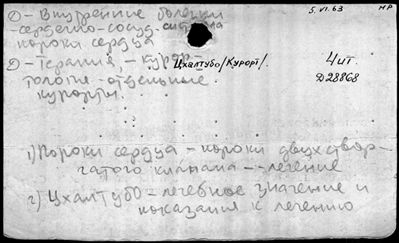 5.VI.63 НР
①-Внутренние болезни
-сердечно-сосуд. система
пороки сердца
②-Терапия, - курор-
тология - отдельные
курорты.
Цхалтубо/Курорт/.
4 ит.
D28868
1) Пороки сердца - пороки двухствор-
чатого клапана -- лечение
2) Цхалтубо - лечебное значение и
показания к лечению